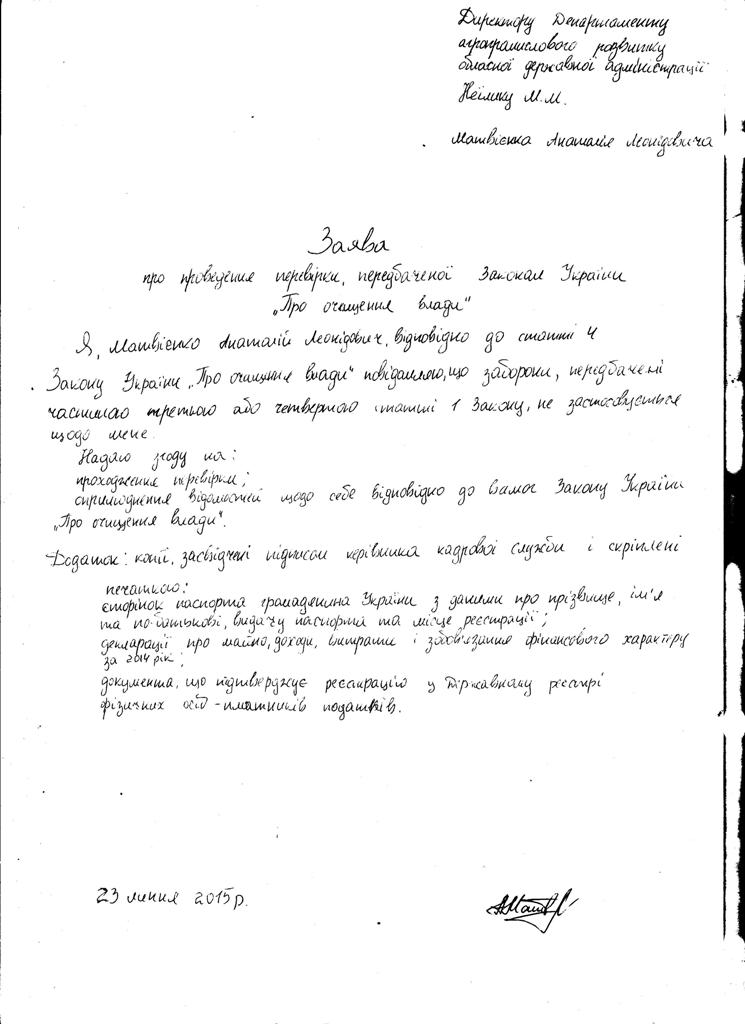 Директору Департаменту
агропромислового розвитку
обласної державної адміністрації
Неїлику М.М.
Матвієнка Анатолія Леонідовича
Заява
про проведення перевірки, передбаченої Законом України
„Про очищення влади"
Я, Матвієнко Анатолій Леонідович, відповідно до статті 4
Закону України „Про очищення влади" повідомляю, що заборони, передбачені
частиною третьою або четвертою статті 1 Закону, не застосовується
щодо мене.
Надаю згоду на:
проходження перевірки;
оприлюднення відомостей щодо себе відповідно до вимог Закону України
„Про очищення влади".
Додаток: копії, засвідчені підписом керівника кадрової служби і скріплені
печаткою:
сторінок паспорта громадянина України з даними про прізвище, ім'я
та по-батькові, видачу паспорта та місце реєстрації;
декларації про майно, доходи, витрати і зобов'язання фінансового характеру
за 2014 рік;
документа, що підтверджує реєстрацію у Державному реєстрі
фізичних осіб - платників податків.
23 липня 2015р.